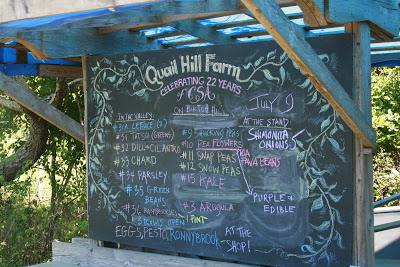 Quail Hill Farm
CELEBRATING 22 YEARS
CSA
IN THE VALLEY
ON BIRCH HILL
JULY 9
AT THE STAND
SHIMONITA
ONIONS
#31A LETTUCE (2)
TATSOI (GREENS)
#32 DILL & CILANTRO
#33 CHARD
#34 PARSLEY
#35 GREEN
BEANS
#9 SHUCKING PEAS
#10 PEA FLOWERS
#11 SNAP PEAS
#12 SNOW PEAS
#15 KALE
#3 ARGULA
1 PINT
FAVA BEANS
PURPLE &
EDIBLE
EGGS, PESTO, RONNYBROOK
AT THE
SHOP!